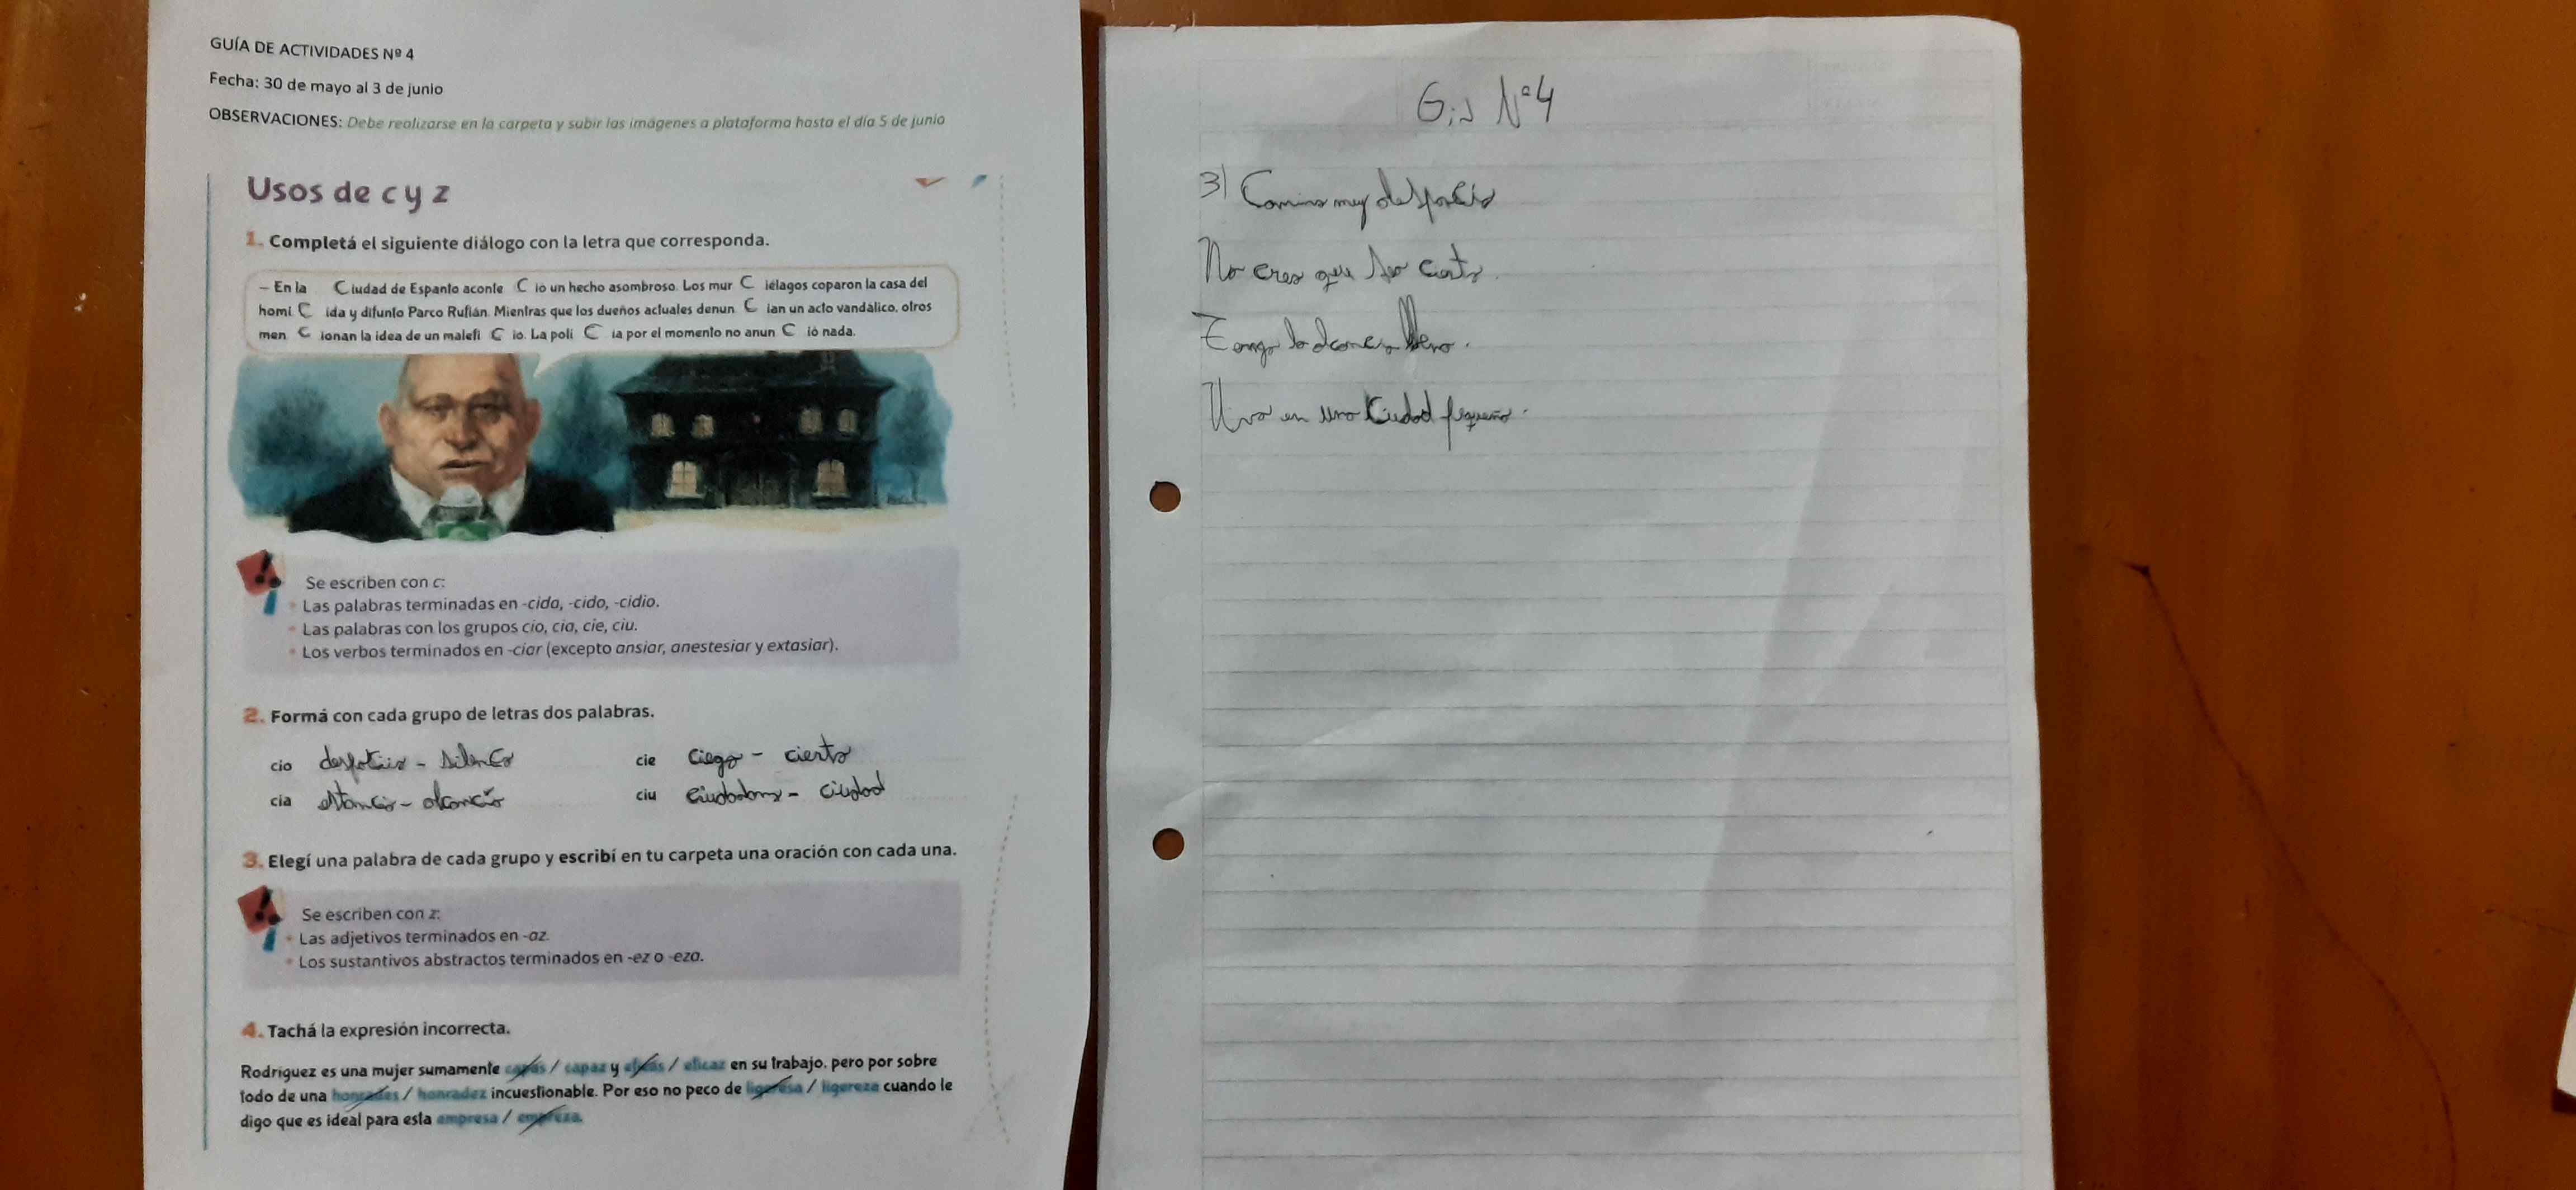 GUÍA DE ACTIVIDADES Nº 4
Fecha: 30 de mayo al 3 de junio
OBSERVACIONES: Debe realizarse en la carpeta y subir las imágenes a plataforma hasta el día 5 de junio
Usos de c y z
1. Completá el siguiente diálogo con la letra que corresponda.
– En la C iudad de Espanto aconte C ió un hecho asombroso. Los mur C iélagos coparon la casa del
homi C ida y difunto Parco Rufián. Mientras que los dueños actuales denun C ian un acto vandálico, otros
men C ionan la idea de un malefi C io. La poli C ía por el momento no anun C ió nada.
Se escriben con c:
• Las palabras terminadas en -cida, -cido, -cidio.
• Las palabras con los grupos cio, cia, cie, ciu.
• Los verbos terminados en -ciar (excepto ansiar, anestesiar y extasiar).
2. Formá con cada grupo de letras dos palabras.
cio despacio - silencio cie ciego - cierto
cia estancia - alcancía ciu ciudadano - ciudad
3. Elegí una palabra de cada grupo y escribí en tu carpeta una oración con cada una.
Se escriben con z:
• Las adjetivos terminados en -az.
• Los sustantivos abstractos terminados en -ez o -eza.
4. Tachá la expresión incorrecta.
Rodríguez es una mujer sumamente capás / capaz y eficás / eficaz en su trabajo, pero por sobre
todo de una honrades / honradez incuestionable. Por eso no peco de ligeresa / ligereza cuando le
digo que es ideal para esta empresa / empreza.
Nº4
3) Camina muy despacio
No creo que sea cierto.
Tengo la alcancía llena.
Vivo en una Ciudad pequeña.